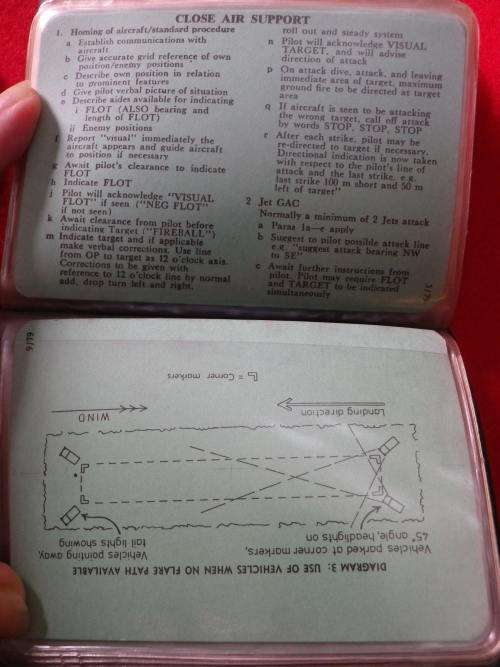 CLOSE AIR SUPPORT
1. Homing of aircraft/standard procedure
a Establish communications with
aircraft
b Give accurate grid reference of own
position/enemy positions
c Describe own position in relation
to prominent features
d Give pilot verbal picture of situation
e Describe aids available for indicating
i FLOT (ALSO bearing and
length of FLOT)
ii Enemy positions
f Report "visual" immediately the
aircraft appears and guide aircraft
to position if necessary
g Await pilot's clearance to indicate
FLOT
h Indicate FLOT
j Pilot will acknowledge "VISUAL
FLOT" if seen ("NEG FLOT"
if not seen)
k Await clearance from pilot before
indicating Target ("FIREBALL")
m Indicate target and if applicable
make verbal corrections. Use line
from OP to target as 12 o'clock axis.
Corrections to be given with
reference to 12 o'clock line by normal
add, drop turn left and right.
roll out and steady system
n Pilot will acknowledge VISUAL
TARGET, and will advise
direction of attack
p On attack dive, attack, and leaving
immediate area of target, maximum
ground fire to be directed at target
area
q If aircraft is seen to be attacking
the wrong target, call off attack
by words STOP, STOP, STOP
r After each strike, pilot may be
re-directed to target if necessary.
Directional indication is now taken
with respect to the pilot's line of
attack and the last strike, e.g.
last strike 100 m short and 50 m
left of target"
2 Jet GAC
Normally a minimum of 2 Jets attack
a Paras 1a—e apply
b Suggest to pilot possible attack line
e.g. "suggest attack bearing NW
to SE"
c Await further instructions from
pilot. Pilot may require FLOT
and TARGET to be indicated
simultaneously
5/79
DIAGRAM 3: USE OF VEHICLES WHEN NO FLARE PATH AVAILABLE
Vehicles parked at corner markers,
45° angle, headlights on
Vehicles pointing away,
tail lights showing
Landing direction
WIND
= Corner markers
9/79